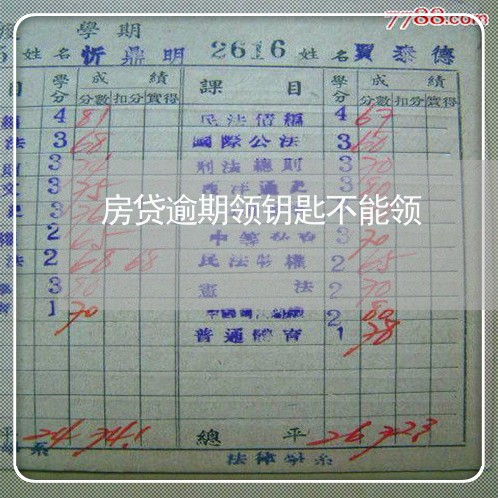 7788.com
學期
姓名 忻鼎明 2616 姓名 賈泰德
目 學分 成績 課目 學分 成績
分數 扣分 實得 分數 扣分 實得
4 81 民法債編 4 67
法 3 68 國際公法 3 60
3 刑法總則 3 70
文 3 75 西洋通史 3 80
房贷逾期领钥匙不能领
權 2 65 3 70
法 2 68 68 民法物權 2 65
3 80 憲法 2 70
1 70 2 80
普通體育 1 78
平 24 74.1 總平 26 72.3
系 法律學系